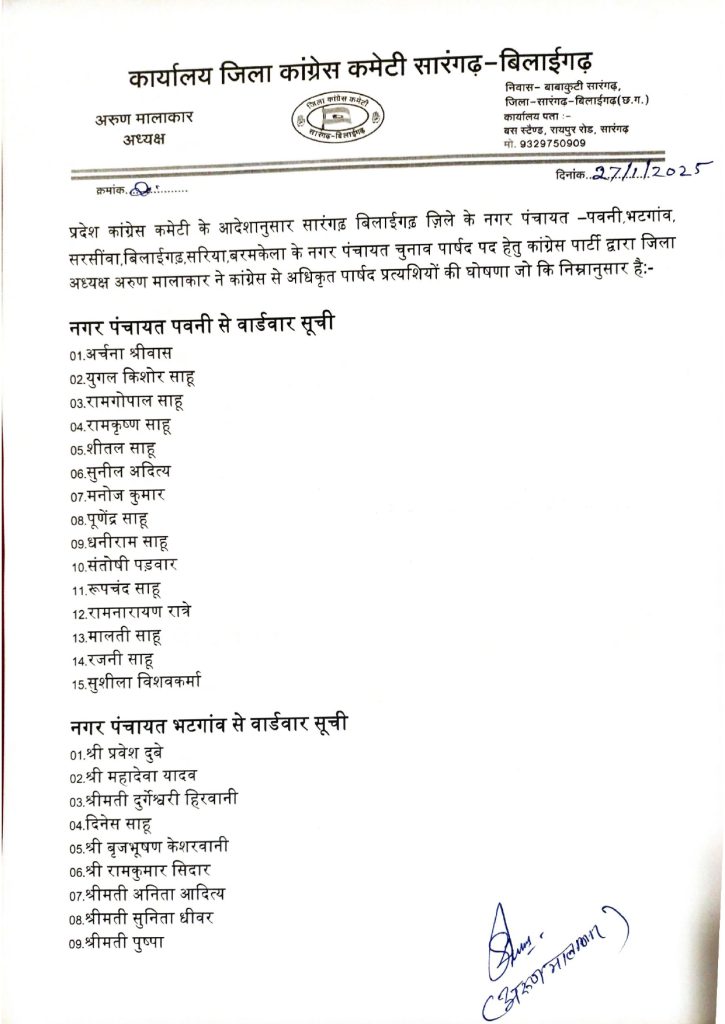 कार्यालय जिला कांग्रेस कमेटी सारंगढ़-बिलाईगढ़
अरुण मालाकार
अध्यक्ष
जिला कांग्रेस कमेटी
सारंगढ़-बिलाईगढ़
निवास- बाबाकुटी सारंगढ़,
जिला-सारंगढ़-बिलाईगढ़(छ.ग.)
कार्यालय पता :-
बस स्टैण्ड, रायपुर रोड, सारंगढ़
मो. 9329750909
क्रमांक..............
दिनांक..27/1/2025
प्रदेश कांग्रेस कमेटी के आदेशानुसार सारंगढ़ बिलाईगढ़ ज़िले के नगर पंचायत -पवनी,भटगांव,
सरसींवा,बिलाईगढ़,सरिया,बरमकेला के नगर पंचायत चुनाव पार्षद पद हेतु कांग्रेस पार्टी द्वारा जिला
अध्यक्ष अरुण मालाकार ने कांग्रेस से अधिकृत पार्षद प्रत्यशियों की घोषणा जो कि निम्नानुसार है:-
नगर पंचायत पवनी से वार्डवार सूची
01.अर्चना श्रीवास
02.युगल किशोर साहू
03.रामगोपाल साहू
04.रामकृष्ण साहू
05.शीतल साहू
06.सुनील अदित्य
07.मनोज कुमार
08.पूणेंद्र साहू
09.धनीराम साहू
10.संतोषी पड़वार
11.रूपचंद साहू
12.रामनारायण रात्रे
13.मालती साहू
14.रजनी साहू
15.सुशीला विशवकर्मा
नगर पंचायत भटगांव से वार्डवार सूची
01.श्री प्रवेश दुबे
02.श्री महादेवा यादव
03.श्रीमती दुर्गेश्वरी हिरवानी
04.दिनेस साहू
05.श्री बृजभूषण केशरवानी
06.श्री रामकुमार सिदार
07.श्रीमती अनिता आदित्य
08.श्रीमती सुनिता धीवर
09.श्रीमती पुष्पा
(अरुण मालाकार)